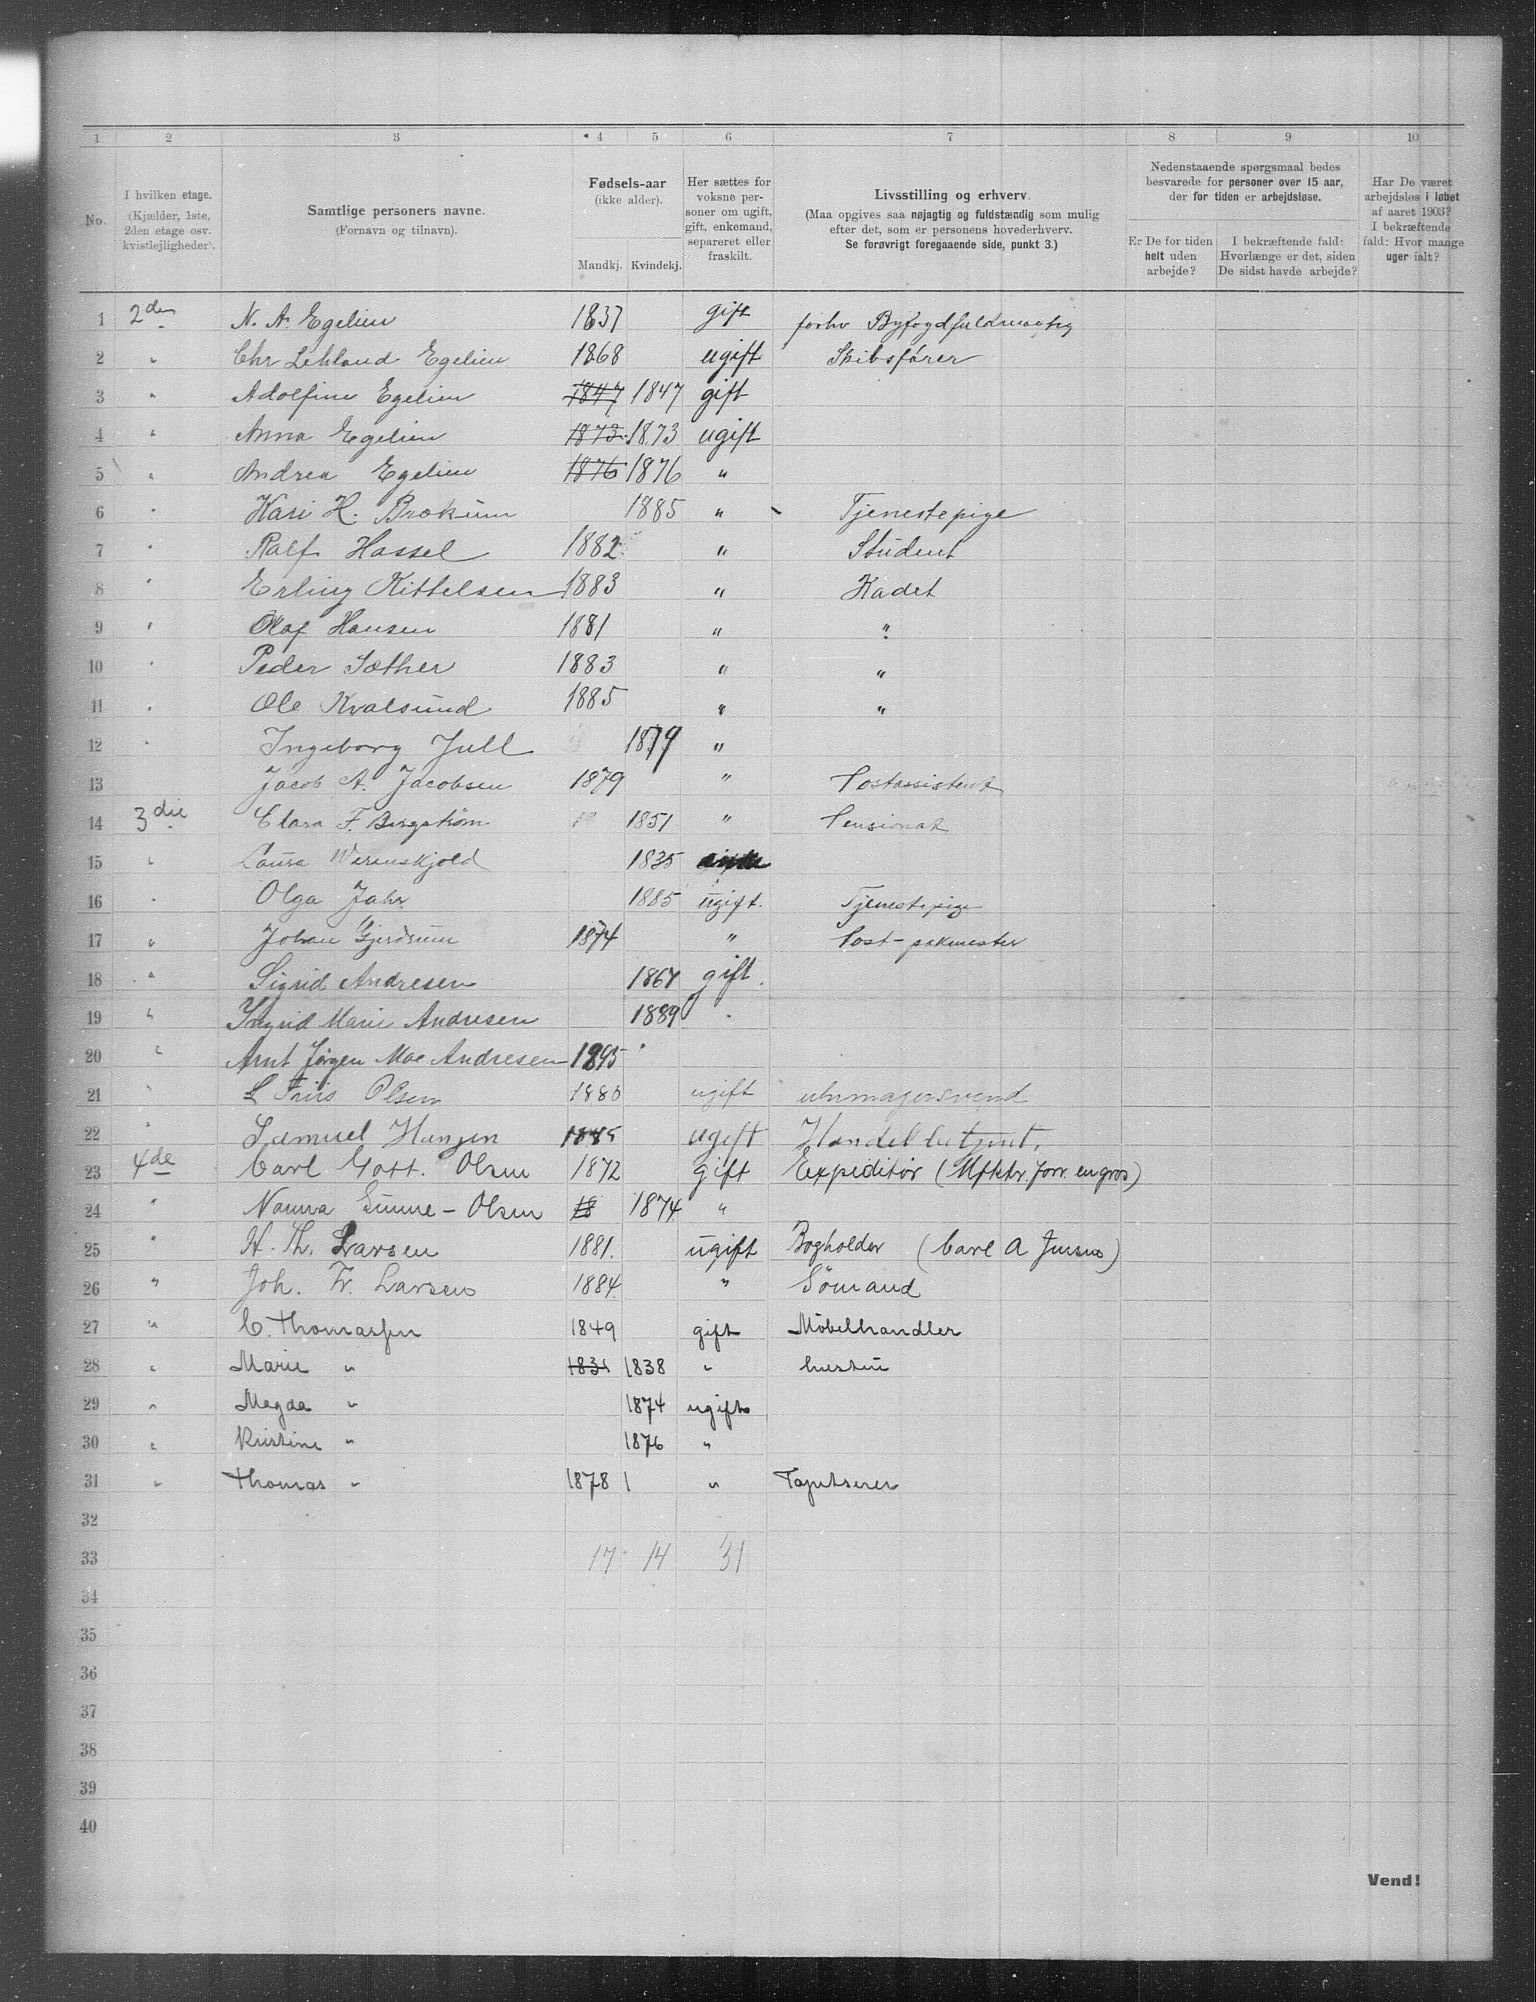 1 2 3 4 5 6 7 8 9 10
No.
I hvilken etage. (Kjælder, 1ste, 2den etage osv. kvistlejligheder).
Samtlige personers navne. (Fornavn og tilnavn).
Fødsels-aar (ikke alder). Mandkj. Kvindekj.
Her sættes for voksne personer om ugift, gift, enkemand, separeret eller fraskilt.
Livsstilling og erhverv. (Maa opgives saa nøjagtig og fuldstændig som mulig efter det, som er personens hovederhverv. Se forøvrigt foregaaende side, punkt 3.)
Nedenstaaende spørgsmaal bedes besvarede for personer over 15 aar, der for tiden er arbejdsløse.
Er De for tiden helt uden arbejde?
I bekræftende fald: Hvorlænge er det, siden De sidst havde arbejde?
Har De været arbejdsløs i løbet af aaret 1903? I bekræftende fald: Hvor mange uger ialt?
1 2den N. A. Egelien 1837 gift forhv Byfogdfuldmægtig
2 " Chr Lehland Egelien 1868 ugift Skibsfører
3 " Adolfine Egelien 1847 1847 gift
4 " Anna Egelien 1873 1873 ugift
5 " Andrea Egelien 1876 1876 "
6 " Kari H. Brækum 1885 " Tjenestepige
7 " Ralf Hassel 1882 " Student
8 " Erling Kittelsen 1883 " Kadet
9 " Olaf Hansen 1881 " "
10 " Peder Sæther 1883 " "
11 " Ole Kvalsund 1885 " "
12 " Ingeborg Jull 1879 "
13 Jacob A. Jacobsen 1879 " Postassistent
14 3die Clara F. Bergstrøm 1851 " Pensionat
15 " Laura Werenskjold 1835 enke
16 " Olga Jahr 1885 ugift. Tjenestepige
17 " Johan Gjerdrum 1874 " Post-pakmester
18 " Sigrid Andresen 1867 gift.
19 " Yngrid Marie Andresen 1889 "
20 " Arnt Jørgen Moe Andresen 1895 "
21 " L Friis Olsen 1880 ugift uhrmagersvend
22 " Samuel Hansen ugift Handelbetjent.
23 4de Carl Gott. Olsen 1872 gift Expeditør (Mfktr. forr. engros)
24 " Nanna Sunne - Olsen 18 1874 "
25 " H. Th. Larsen 1881. ugift Bogholder (Carl A Jensen)
26 " Joh. Fr. Larsen 1884. " Sömand
27 " C. Thomassen 1849 gift Möbelhandler
28 " Marie " 1838 " hustru
29 " Magda " 1874 ugift
30 " Kristine " 1876 "
31 " Thomas " 1878 1 " Tapetserer
32
33 17 14 31
34
35
36
37
38
39
40
Vend!